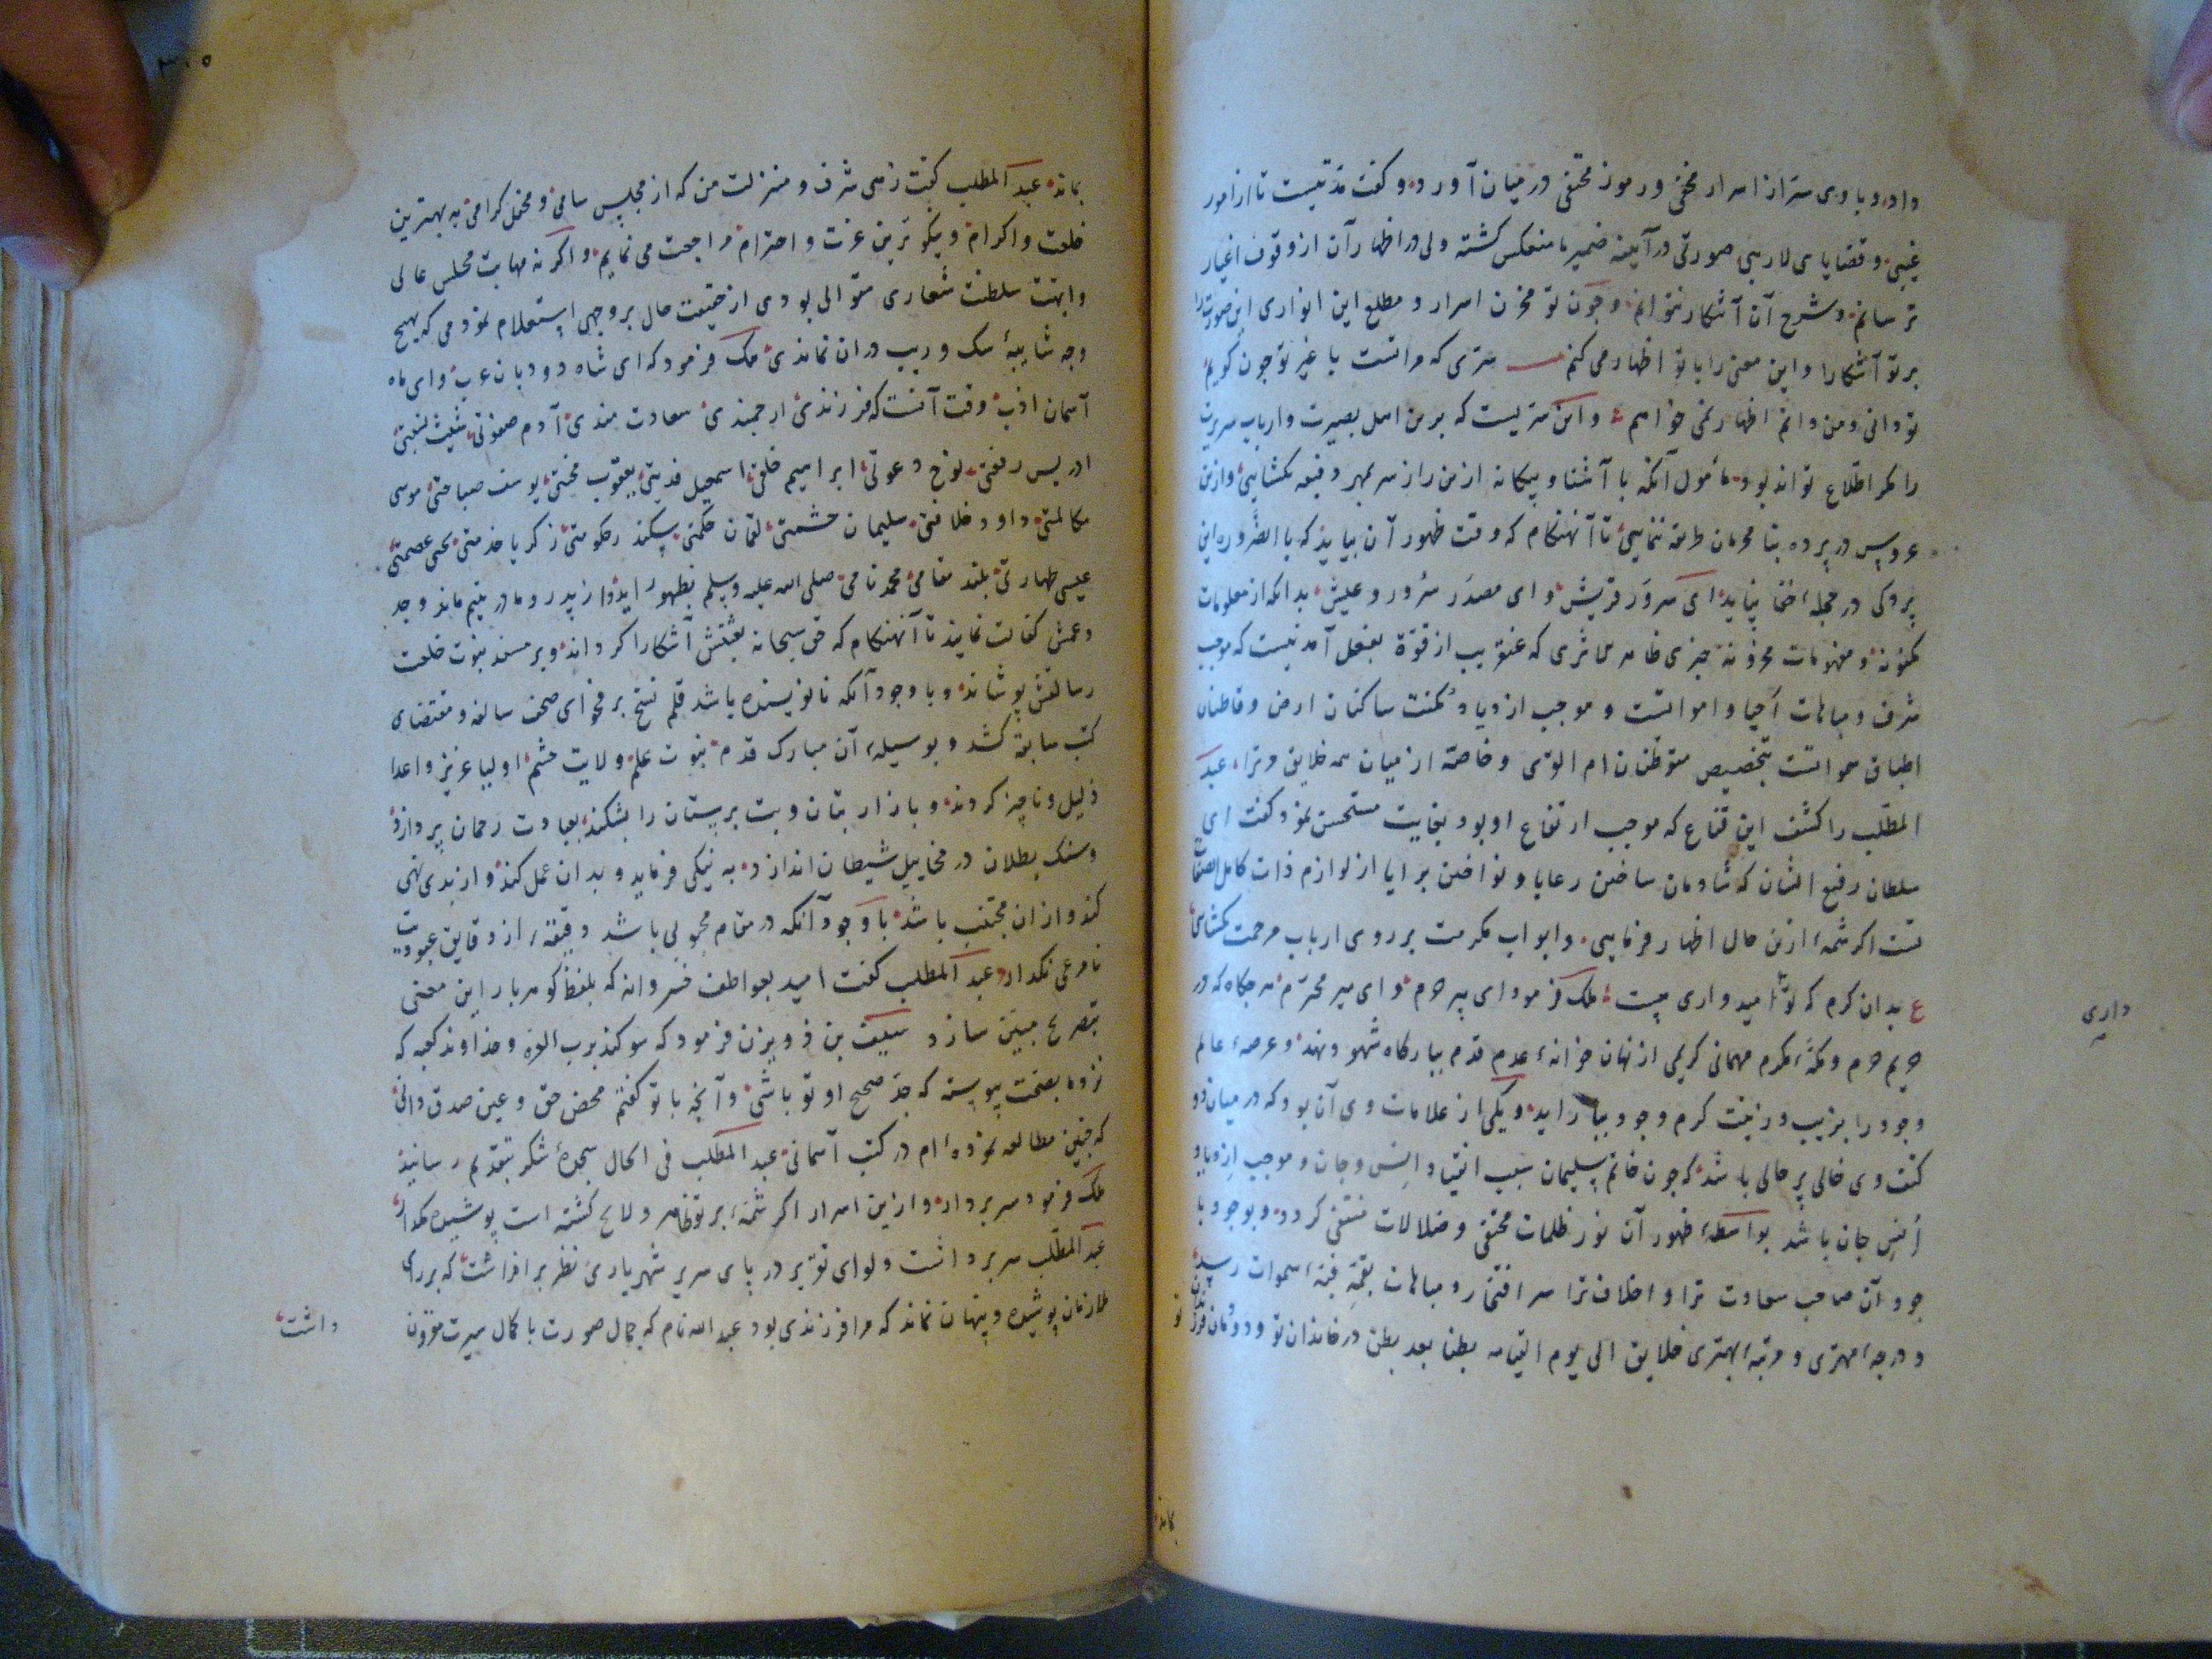 داد و با وی سرّ از اسرار مخفی و رموز مختفی در میان آورد و گفت مدتیست تا از امور
غیبی و قضایای لاریبی صورتی در آیینه ضمیر ما منعکس گشته ولی در اظهار آن از وقوف اغیار
ترسانم و شرح آن آشکار نتوانم و چون تو مخزن اسرار و مطلع این انواری این صورت را
بر تو آشکارا و این معنی را با تو اظهار می کنم سرّی که مراتست با غیر تو چون گویم
تو دانی و من دانم اظهار نمی خواهم و این سریست که بر من اهل بصیرت و ارباب سریرت
را مکر اطّلاع تواند بود مأمول آنکه با آشنا و بیکانه ازین راز سر بمهر دقیقه نکشایی و ازین
عروس در پرده بنا محرمان طرفه ننمایی تا آنهنکام که وقت ظهور آن بیاید که بالضروره این
پردکی در حجلهٔ اختفا نپاید ای سرور قریش و ای مصدر سرور و عیش بدانکه از معلومات
مکنونه و مفهومات مخزونه چیزی ظاهر شد که عنقریب از قوّة بفعل آمدنیست که موجب
شرف و مباهات احیا و امواتست و موجب ازدیاد مکنت ساکنان ارض و قاطنان
اطباق سمواتست بتخصیص متوطّنان ام القری و خاصّه از میان همه خلایق مر ترا عبد
المطّلب را کشف این قناع که موجب ارتفاع او بود بغایت مستحسن نمود گفت ای
سلطان رفیع الشان که شادمان ساختن رعایا و نواختن برایا از لوازم ذات کامل الصفات
تست اکر شمهٔ ازین حال اظهار فرمایی و ابواب مکرمت بر روی ارباب مرحمت کشایی
ع بدان کرم که تو امیدواری چیست ملک فرمود ای پیر حرم و ای میر محترم هر جکاه که در
داری
حریم حرم و مکهٔ مکرم مهمانی کریمی از نهان خانهٔ عدم قدم ببارکاه شهود نهد و عرصهٔ عالم
وجود را بزیب و زینت کرم وجود بیاراید و یکی از علامات وی آن بود که در میان دو
کتف وی خالی پر حالی باشد که چون خاتم سلیمان سبب انقیاد انس و جان و موجب ازدیاد
اُنس جان باشد بواسطهٔ ظهور آن نور ظلمات مختفی و ضلالات منتفی کردد و بوجود با
جود آن صاحب سعادت ترا و اخلاف ترا سر افتخار و مباهات بقمّهٔ قبهٔ سموات رسد
و درجهٔ مهتری و مرتبهٔ بهتری خلایق الی یوم القیامه بطنا بعد بطن در خاندان تو و دودمان فرزندان تو
بماند
۳۰۵
بماند عبد المطلب گفت زهی شرف و منزلت من که از مجلس سامی و محفل کرامی به بهترین
خلعت و اکرام و نیکوترین عزت و احترام مراجعت می نمایم و اکر نه مهابت مجلس عالی
و ابهت سلطنت شعاری متوالی بودی از حقیقت حال بر وجهی استعلام نمودمی که هیچ
وجه شایبهٔ شک و ریب در ان نماندی ملک فرمود که ای شاه دودمان عرب و ای ماه
آسمان ادب وقت آنست که فرزندی ارجمندی سعادت مندی آدم صفوتی شیث نسبتی
ادریس رفعتی نوح دعوتی ابراهیم خلتی اسمعیل فدیتی یعقوب محنتی یوسف صباحتی موسی
مکالمتی داود خلافتی سلیمان حشمتی لقمان حکمتی سکندر حکومتی زکریا خدمتی یحیی عصمتی
عیسی طهارتی بلند مقامی محمد نامی صلی الله علیه وسلم بظهور آید و از پدر و مادر یتیم ماند و جد
و عمش کفالت نمایند تا آنهنکام که حق سبحانه بعثتش آشکارا کرداند و بر مسند نبوت خلعت
رسالتش پوشاند و با وجود آنکه نانویسنده باشد قلم نسخ بر فحوای صحف سالفه و مقتضای
کتب سابقه کشد و بوسیلهٔ آن مبارک قدم نبوت علم ولایت حشم اولیا عزیز و اعدا
ذلیل و ناچیز کردند و بازار بتان و بت پرستان را بشکند بعبادت رحمان پردازد
و سنک بطلان در مخاییل شیطان اندازد به نیکی فرماید و بدان عمل کند و از بدی نهی
کند و از ان مجتنب باشد با وجود آنکه در مقام محبوبی باشد دقیقهٔ از دقایق عبودیت
نامرعی نکذارد عبد المطلب گفت امید بعواطف خسروانه که بلفظ کوهربار این معنی
بتصریح مبیّن سازد سیف بن ذویزن فرمود که سوکند برب العزة و خداوند کعبه که
نزد ما بصحت پیوسته که جد صحیح او تو باشی و آنچه با تو گفتم محض حق و عین صدق دانی
که چنین مطالعه نموده‌ام در کتب آسمانی عبد المطلب فی الحال سجدهٔ شکر بتقدیم رسانید
ملک فرمود سر بردار و ازین اسرار اکر شمهٔ بر تو ظاهر و لایح کشته است پوشیده مدار
عبد المطّلب سر برداشت و لوای تقریر در پای سریر شهریاری نظر برافراشت که بر رای
ملازمان پوشیده و پنهان نماند که مرا فرزندی بود عبد الله نام که جمال صورت با کمال سیرت مقرون
داشت